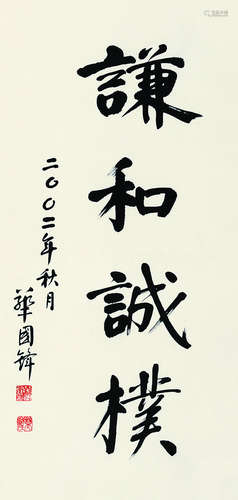 謙和誠樸
二〇〇二年秋月
華國鋒